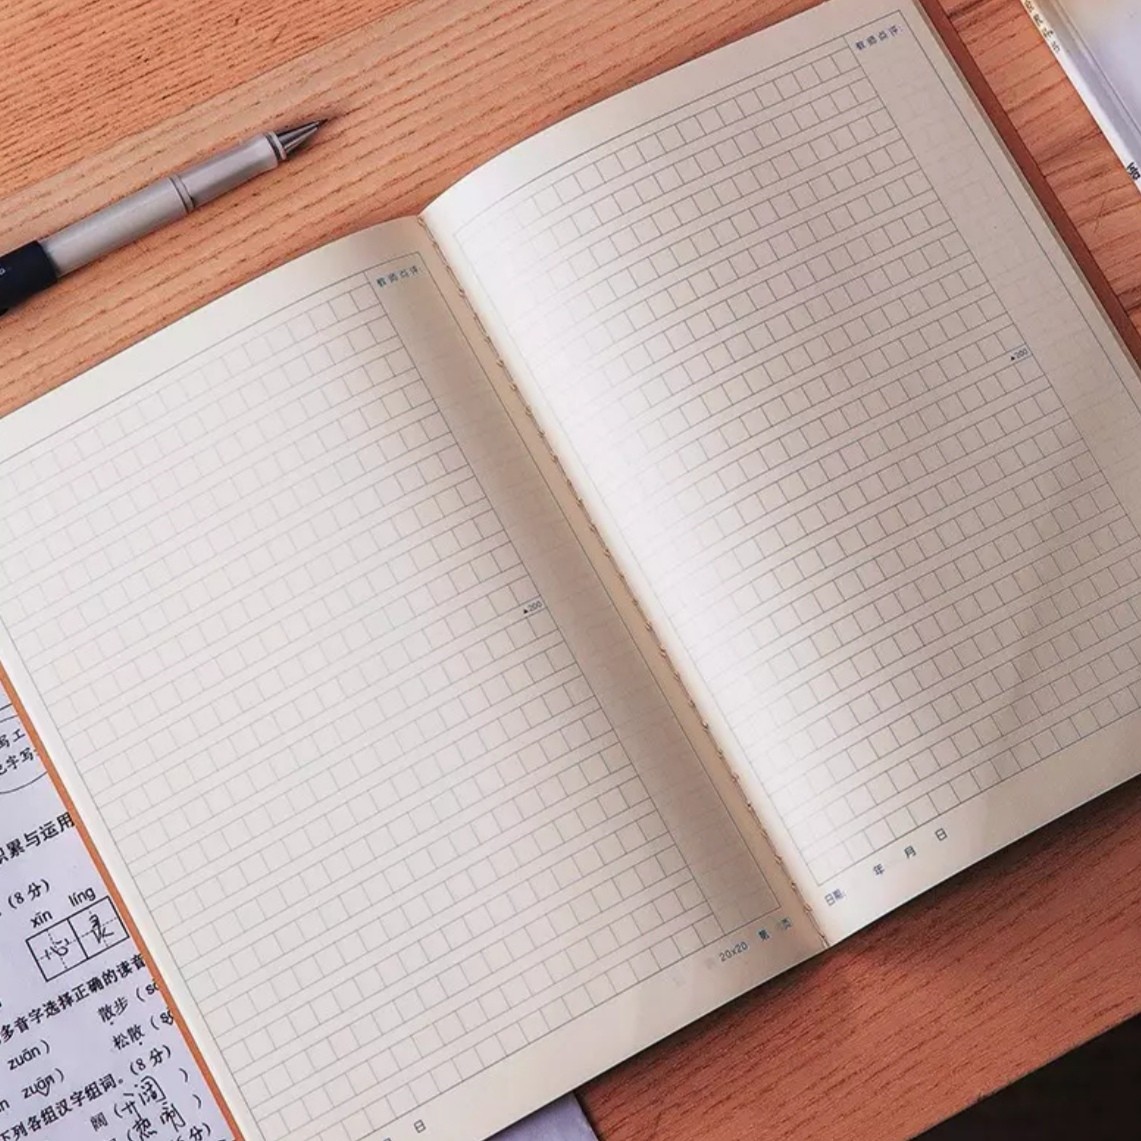 教师点评:
▲200
20x20 第 页
日
教师点评:
▲200
日期: 年 月 日
积累与运用
(8分)
xīn líng
心 灵
多音字选择正确的读音
散步(sǎ
zuān)
松散(sǎ
zuān)
下列各组汉字组词。(8分)
阔(开阔)
(热闹)
分)